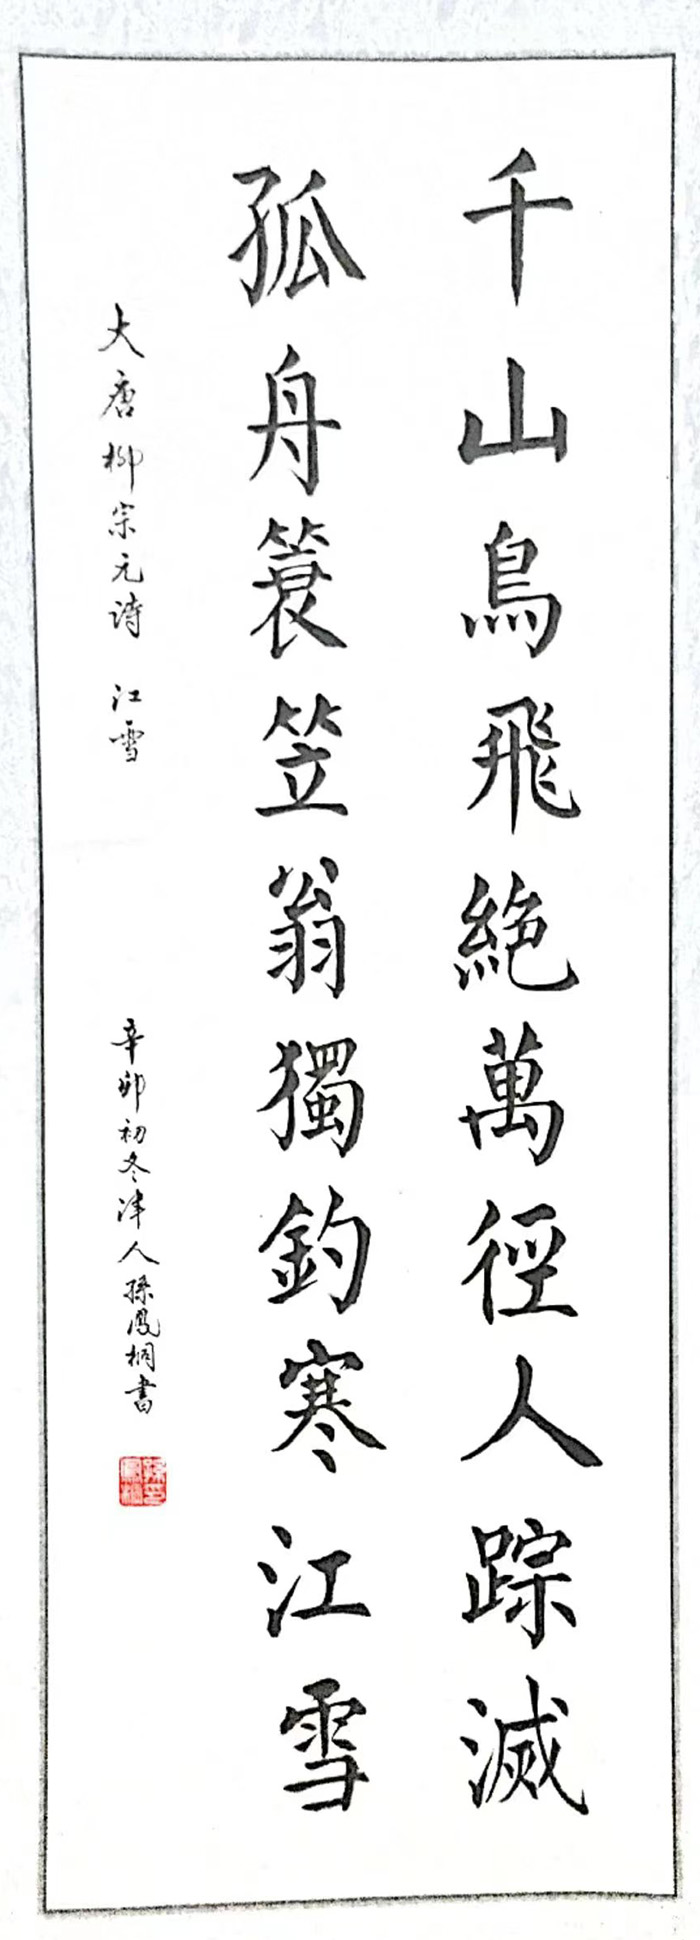 千山鳥飛絶萬徑人踪滅
孤舟簑笠翁獨釣寒江雪
大唐柳宗元詩 江雪
辛卯初冬津人孫鳳桐書